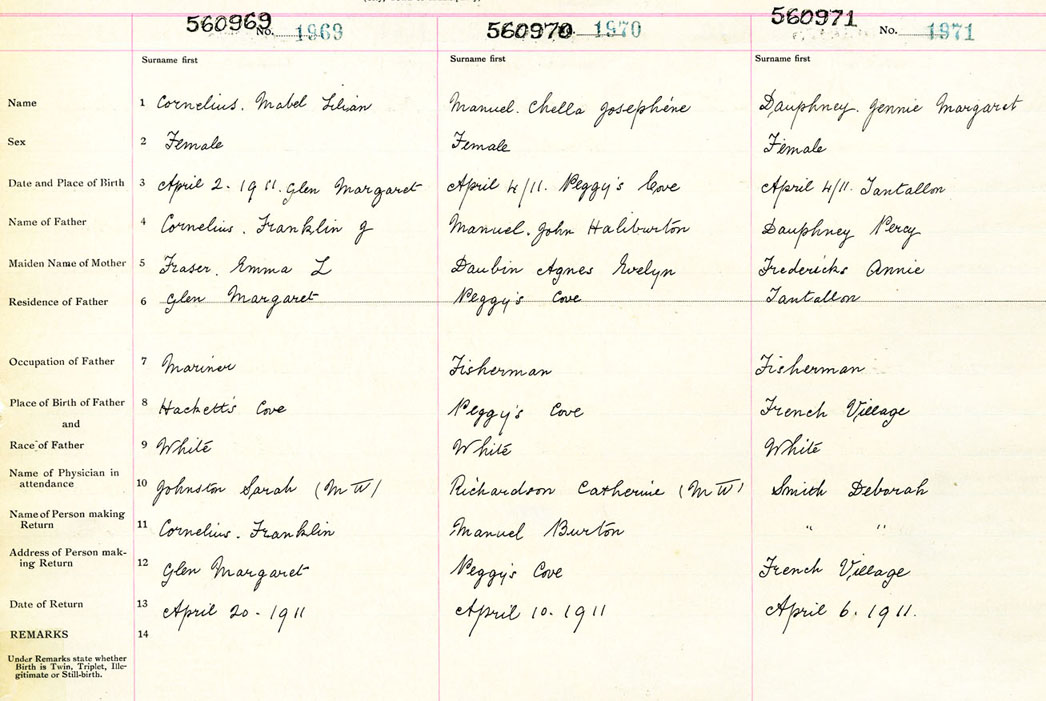 560969 No. 1969 560970 1970 560971 No. 1971
Surname first Surname first Surname first
Name 1 Cornelius. Mabel Lilian Manuel. Chella Josephine Dauphney. Jennie Margaret
Sex 2 Female Female Female
Date and Place of Birth 3 April 2. 1911. Glen Margaret April 4/11. Peggy's Cove April 4/11. Tantallon
Name of Father 4 Cornelius. Franklin J Manuel. John Haliburton Dauphney Percy
Maiden Name of Mother 5 Fraser. Emma L Daubin Agnes Evelyn Fredericks Annie
Residence of Father 6 Glen Margaret Peggy's Cove Tantallon
Occupation of Father 7 Mariner Fisherman Fisherman
Place of Birth of Father 8 Hackett's Cove Peggy's Cove French Village
and
Race of Father 9 White White White
Name of Physician in
attendance 10 Johnston Sarah (MW) Richardson Catherine (MW) Smith Deborah
Name of Person making
Return 11 Cornelius. Franklin Manuel Burton " "
Address of Person mak-
ing Return 12 Glen Margaret Peggy's Cove French Village
Date of Return 13 April 20 - 1911 April 10. 1911 April 6. 1911.
REMARKS 14
Under Remarks state whether
Birth is Twin, Triplet, Ille-
gitimate or Still-birth.